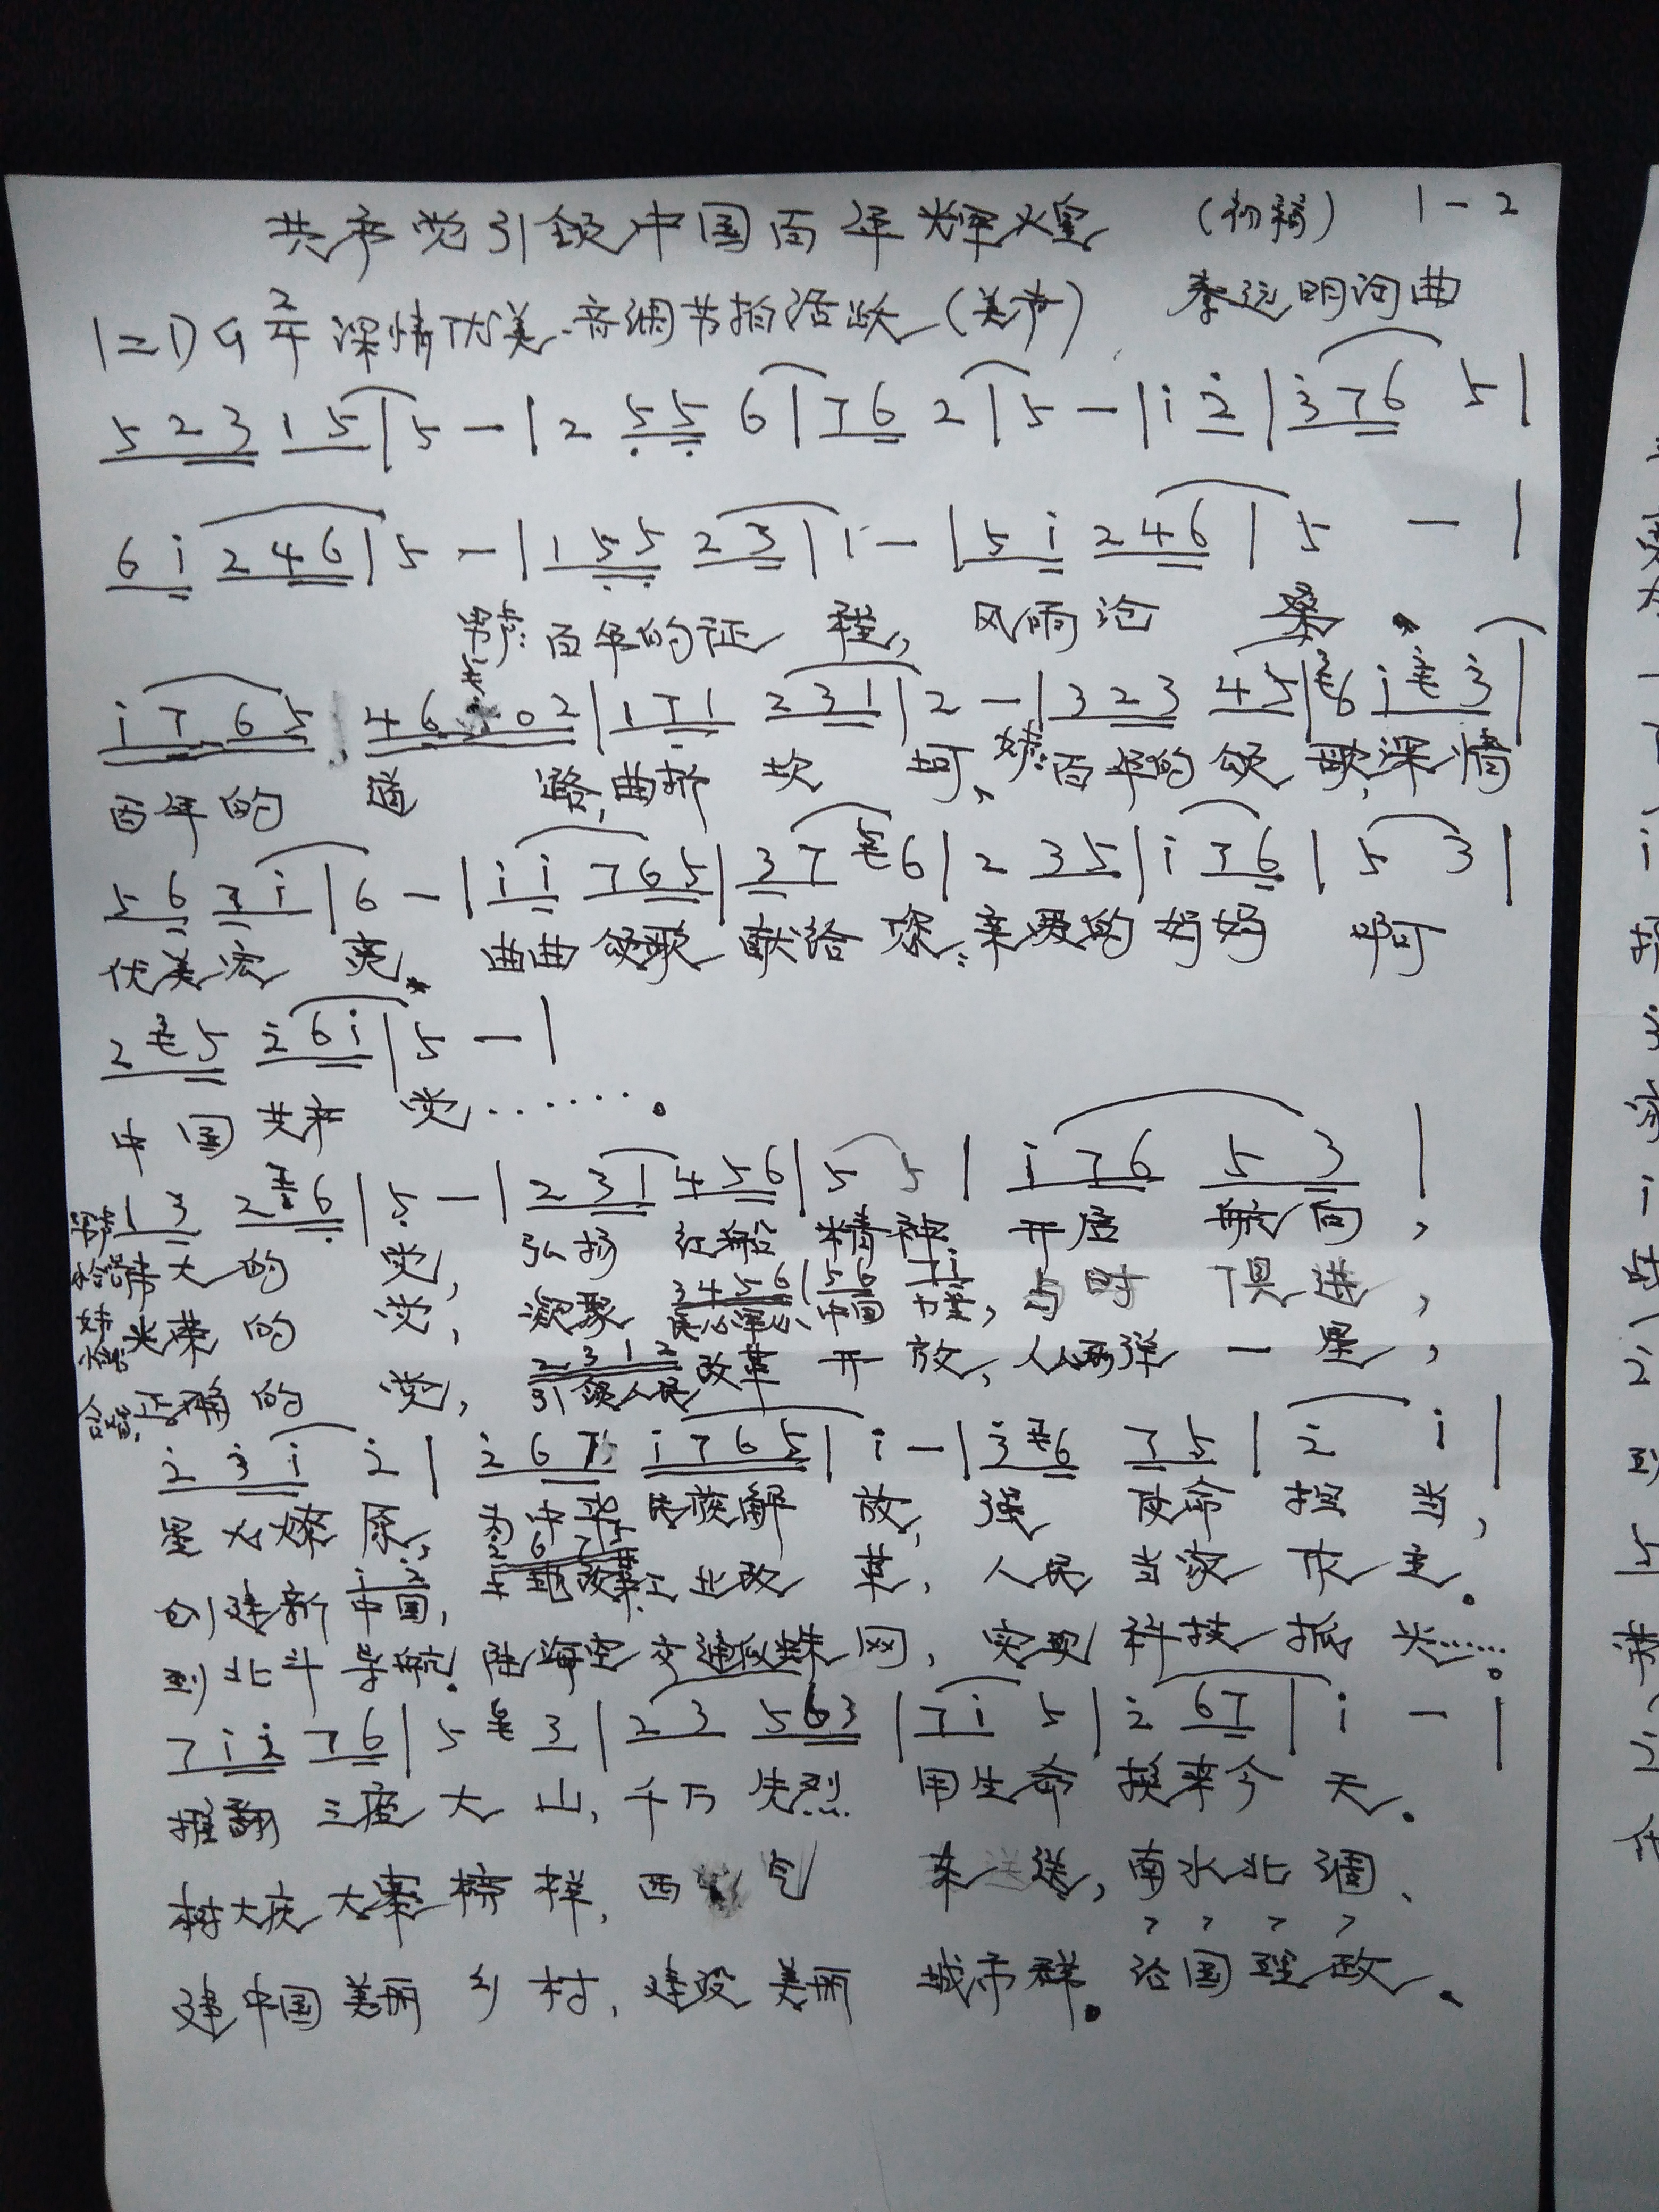 共产党引领中国百年辉煌 (初稿) 1-2
1=D G 2/4 深情优美、音调节拍活跃 (美声) 秦远明词曲
5 2 3 1 5 | 5 - | 2 5 5 6 | 7 6 2 | 5 - | i 2 | 3 7 6 5 |
6 i 2 4 6 | 5 - | 1 5 5 2 3 | 1 - | 5 i 2 4 6 | 5 - |
男声: 百年的征程, 风雨沧桑.
i 7 6 5 4 6 0 2 | 1 7 1 2 3 1 | 2 - | 3 2 3 4 5 | 6 i 3 |
百年的 道 路,曲折 坎 坷、 女声: 百年的 颂 歌,深情
5 6 7 i | 6 - | i i 7 6 5 | 3 7 6 | 2 3 5 | i 7 6 | 5 3 |
优美宏 亮. 曲曲 颂歌 献给 您: 亲爱的 妈妈 啊
2 5 2 6 i | 5 - |
中国共产 党…….
1 3 2 6 | 5 - | 2 3 1 4 5 6 | 5 5 | i 7 6 5 3 |
伟大的 党, 弘扬 红船 精神, 开启 航向,
3 4 5 6 | 5 6 7 i
光荣的 党, 凝聚 民心军心、中国 力量, 与时 俱进,
2 3 1 2
合唱 正确的 党, 引领人民 改革 开放, 人人 两弹 一星,
2 3 i 2 | 2 6 7 i 7 6 5 | i - | 3 6 7 5 | 2 i |
星火燎 原, 为中华 民族解 放, 使命 担 当,
创建新 中国, 土地改革工业改 革, 人民 当家 作主.
到北斗 导航. 陆海空交通似蛛网, 实现 科技 拔 尖…….
7 i 2 7 6 | 5 3 | 2 3 5 6 3 | 7 i 5 | 2 6 7 | i - |
推翻 三座 大 山, 千万 先烈 用生命 换来今 天.
树大庆大寨 榜 样, 西 气 东 送, 南水北 调、
建中国美丽 乡 村, 建设 美丽 城市群. 治国理政.